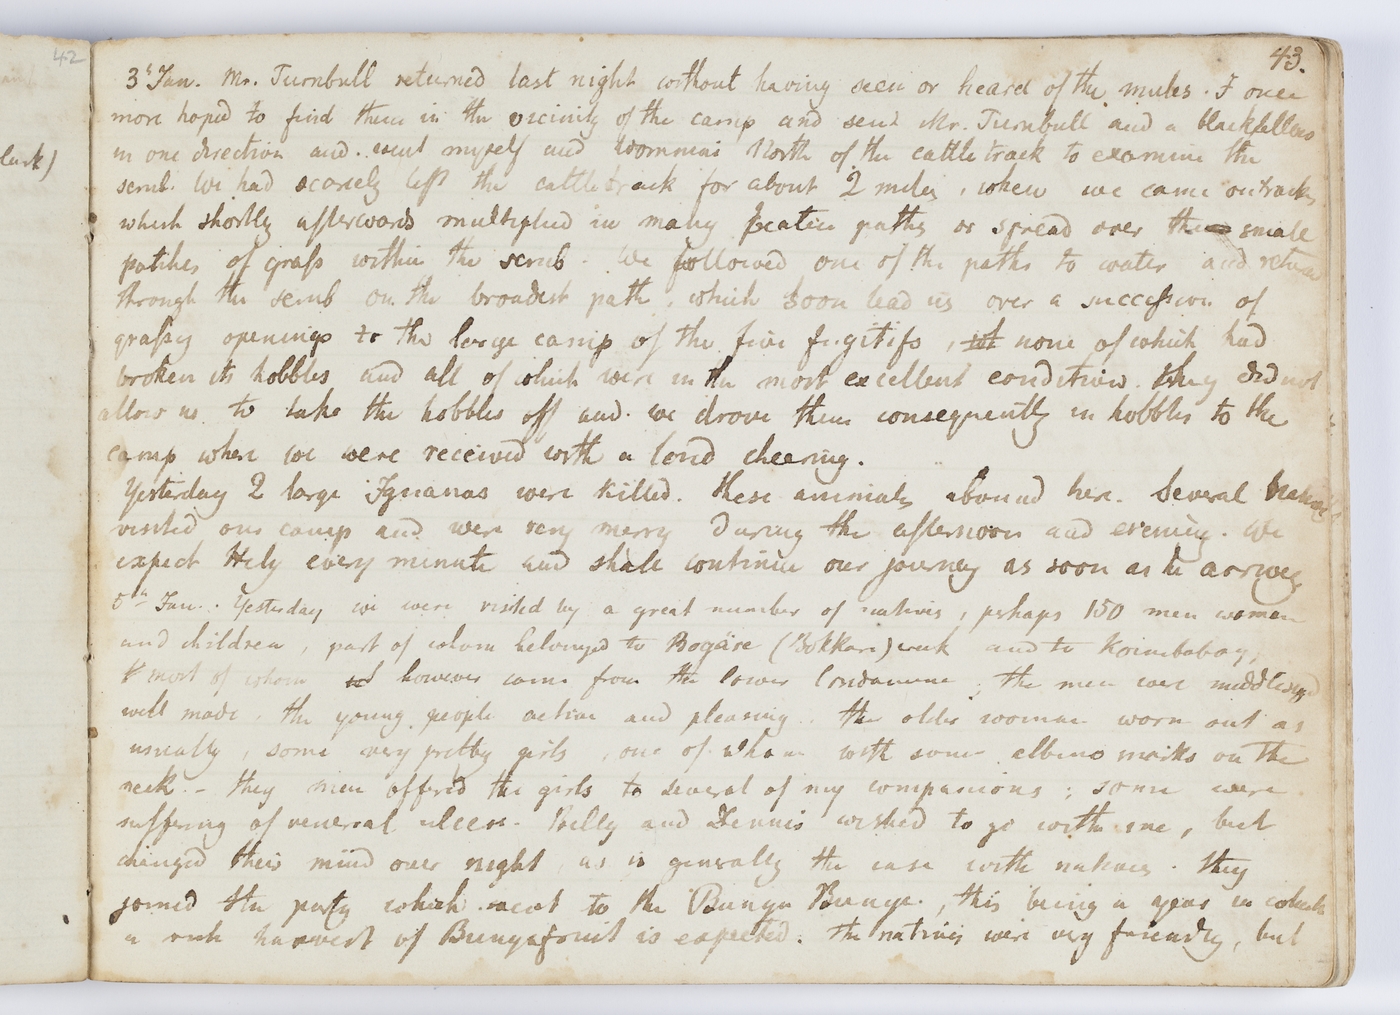 42
lark)
43.
3d Jan. Mr. Turnbull returned last night without having seen or heard of the mules. I once
more hoped to find them in the vicinity of the camp and send Mr. Turnbull and a blackfellow
in one direction and went myself and Wommai North of the cattletrack to examine the
scrub. We had scarcely left the cattletrack for about 2 miles, when we came on tracks
which shortly afterwards multiplied in many beaten paths or spread over the small
patches of grass within the scrub. We followed one of the paths to water and return
through the scrub on the broadest path, which soon lead us over a succession of
grassy openings to the large camp of the five fugitifs, none of which had
broken its hobbles and all of which were in the most excellent condition. They did not
allow us to take the hobbles off and we drove them consequently in hobbles to the
camp where we were received with a loud cheering.
Yesterday 2 large Iguanas were killed. These animals abound here. Several natives
visited our camp and were very merry during the afternoon and evening. We
expect Hely every minute and shall continue our journey as soon as he arrives
5th Jan. Yesterday we were visited by a great number of natives, perhaps 150 men women
and children, part of whom belonged to Bogare (Bokkara) creek and to Koimbabay,
most of whom however came from the lower Condamine; the men were middlesized
well made, the young people active and pleasing. The older woman worn out as
usually, some very pretty girls, one of whom with some albino marks on the
neck. - they men offered the girls to several of my companions; some were
suffering of veneral ulcers. Billy and Dennis wished to go with me, but
changed their mind over night, as is generally the case with natives. They
joined the party which went to the Bunya Bunya, this being a year in which
a rich harvest of Bunyafruit is expected. The natives were very friendly, but